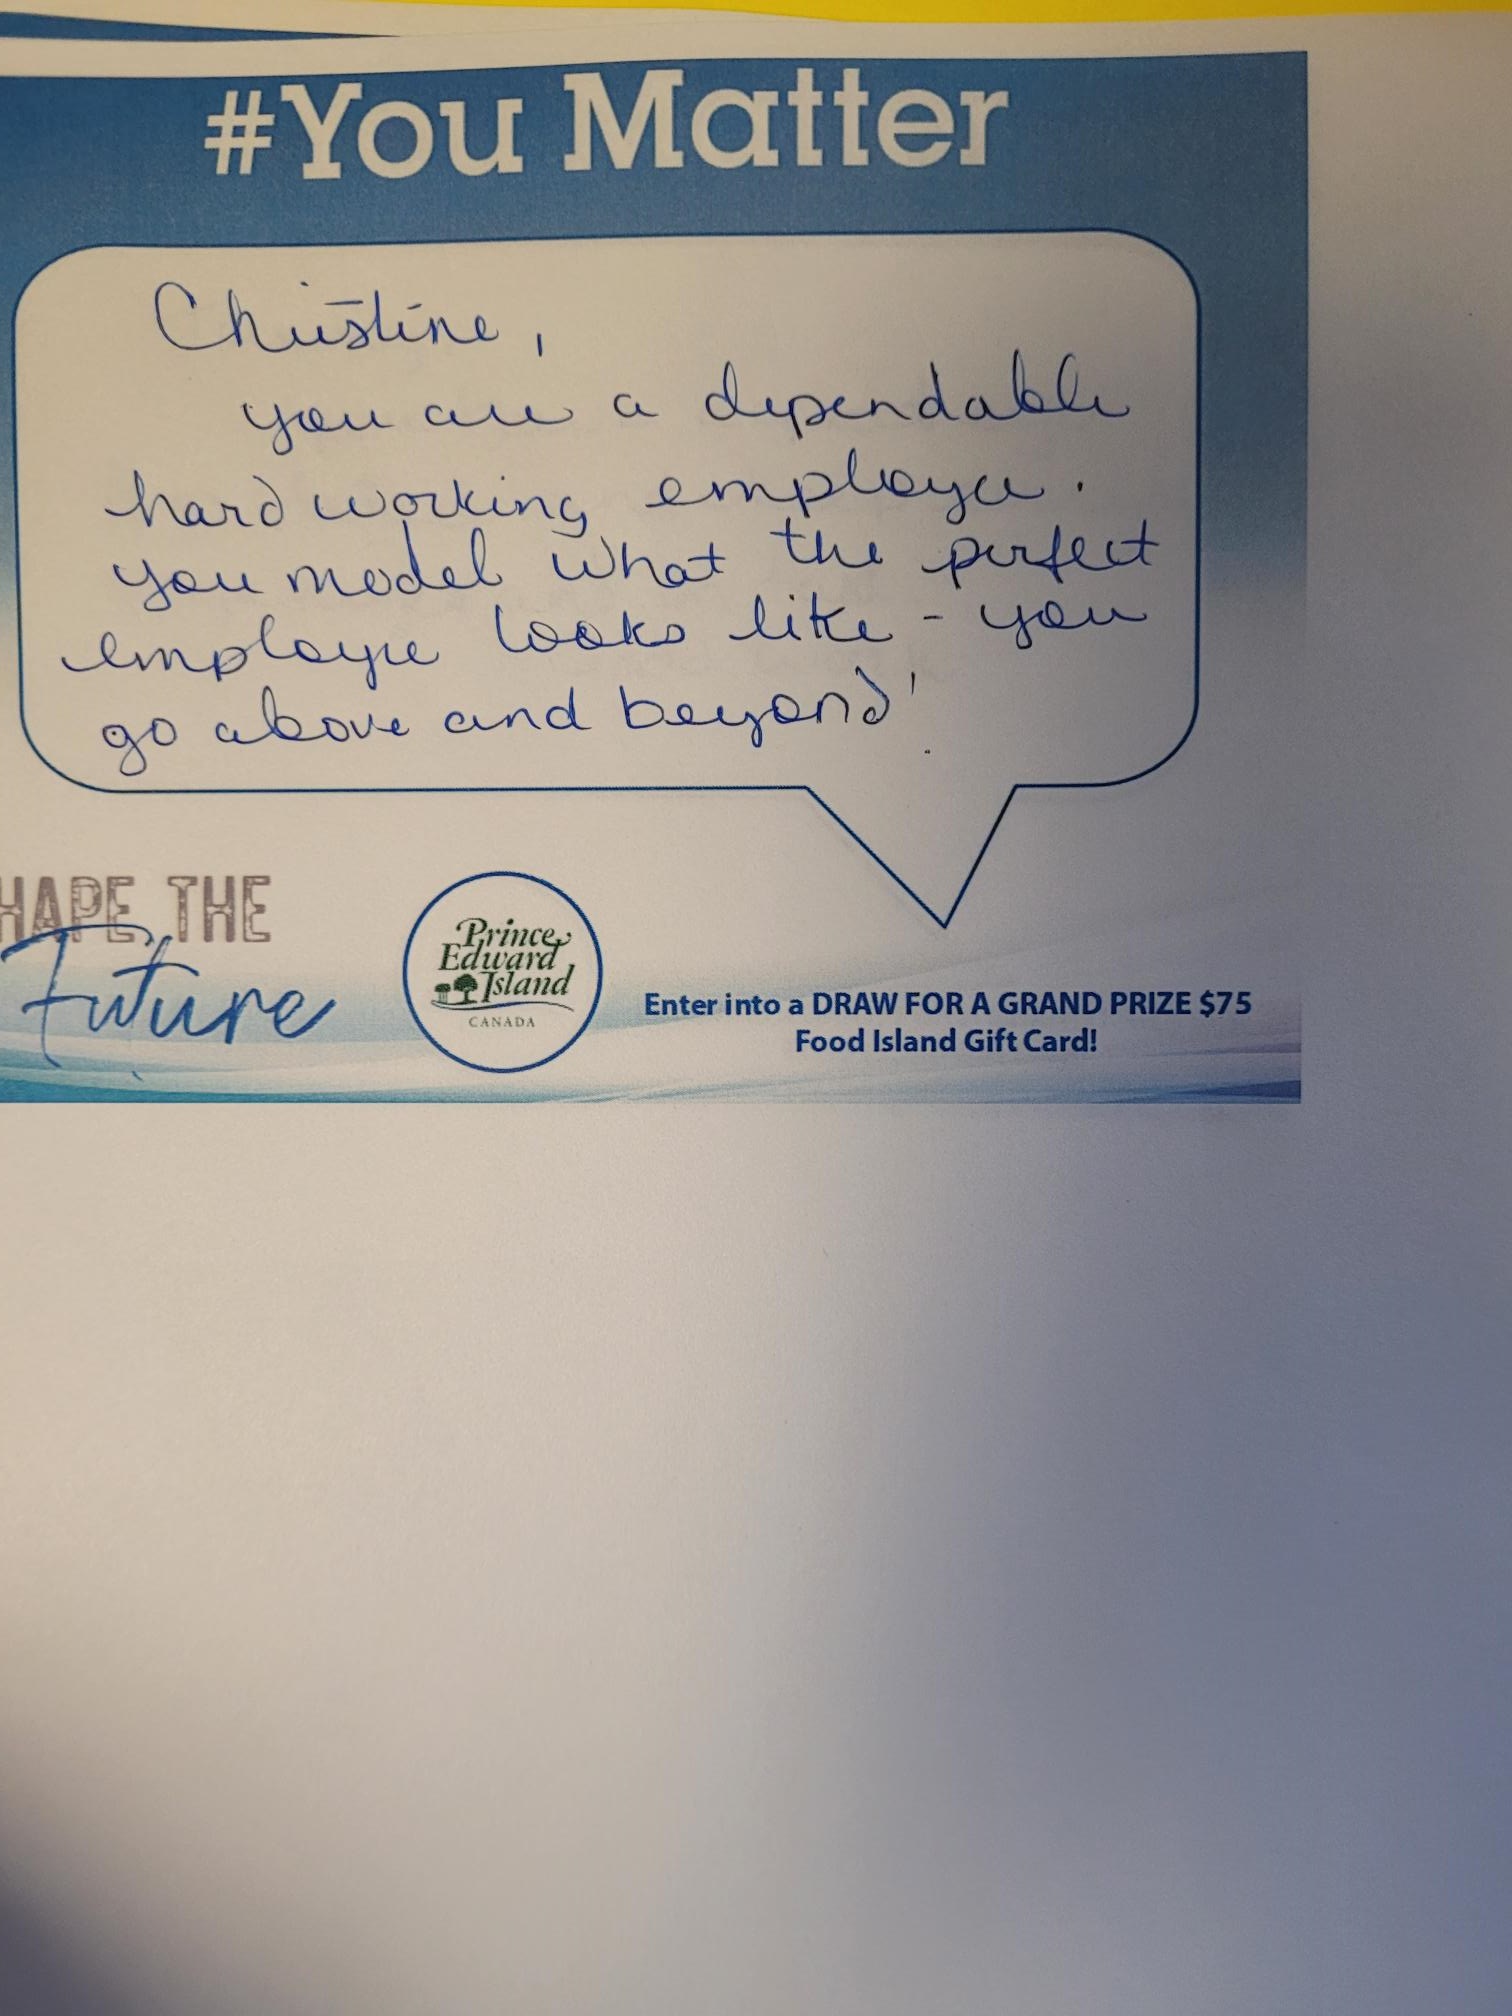 #You Matter
Christine,
you are a dependable
hard working employee.
you model what the perfect
employee looks like - you
go above and beyond!
HAPE THE
Future
Prince
Edward
Island
CANADA
Enter into a DRAW FOR A GRAND PRIZE $75
Food Island Gift Card!